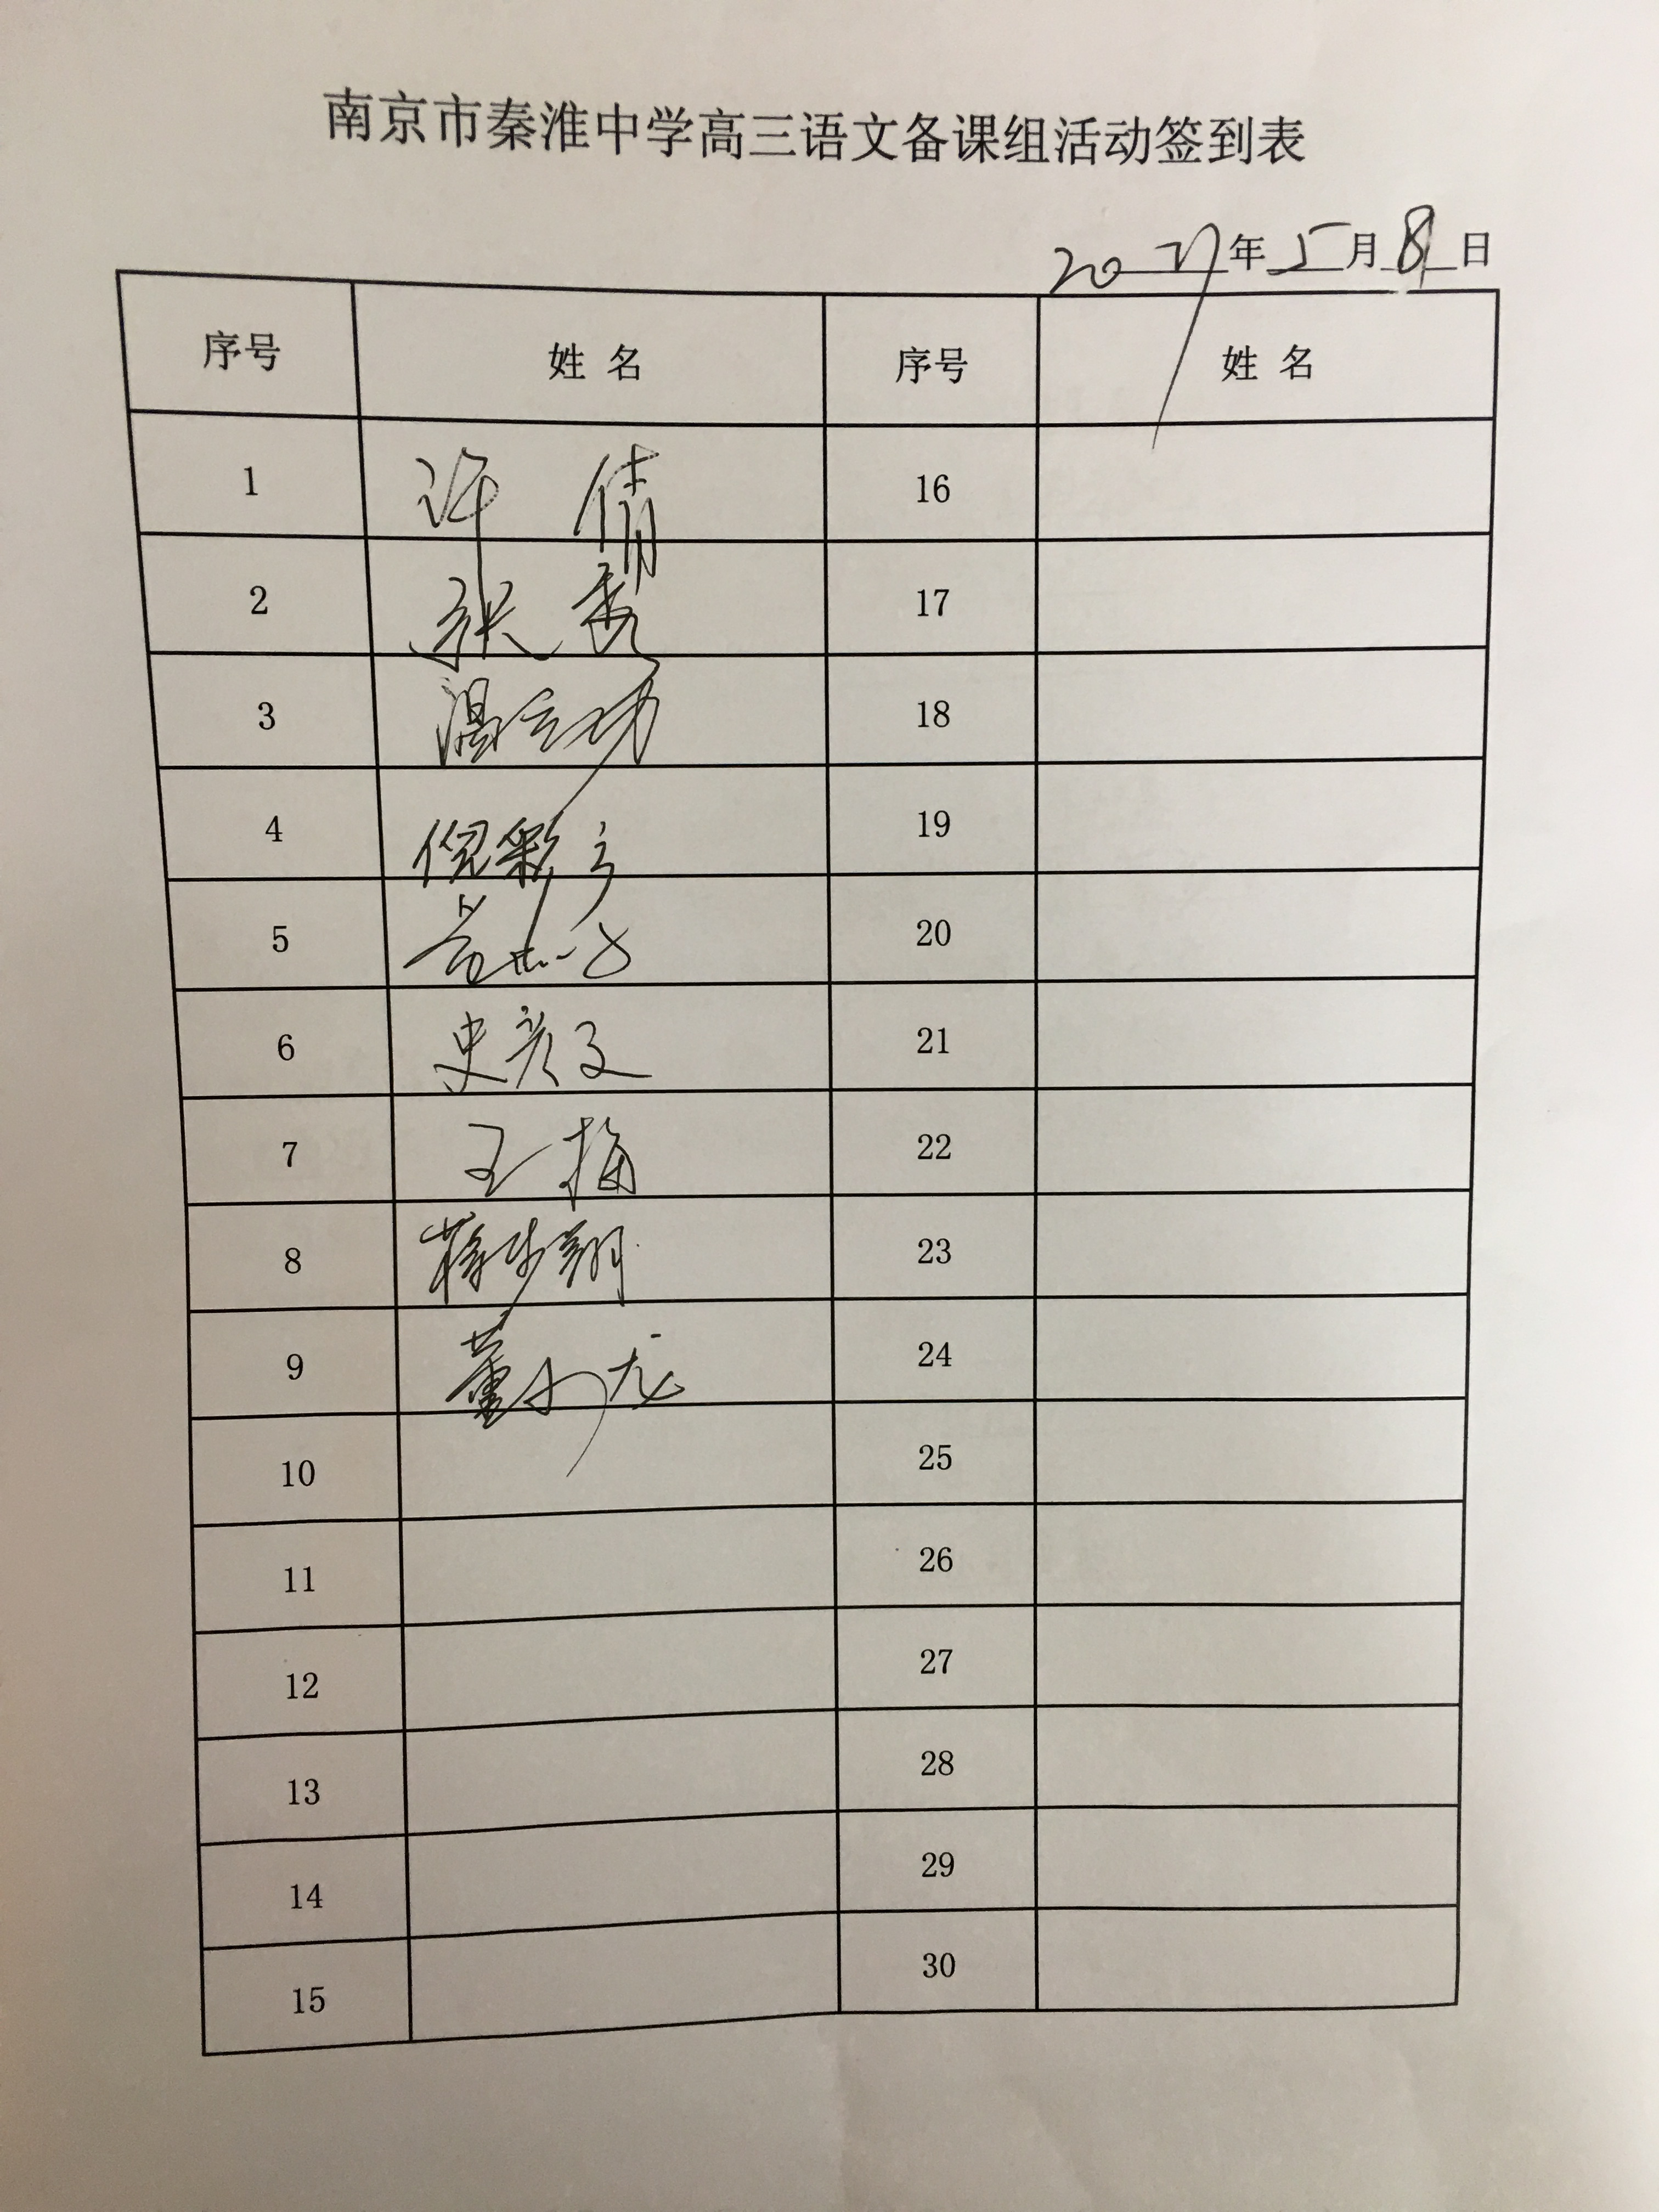 南京市秦淮中学高三语文备课组活动签到表
年 5 月 8 日
序号 姓 名 序号 姓 名
1 许 倩 16
2 张 秀 17
3 18
4 倪彩 19
5 20
6 史彦文 21
7 王梅 22
8 蒋步翔 23
9 董小龙 24
10 25
11 26
12 27
13 28
14 29
15 30